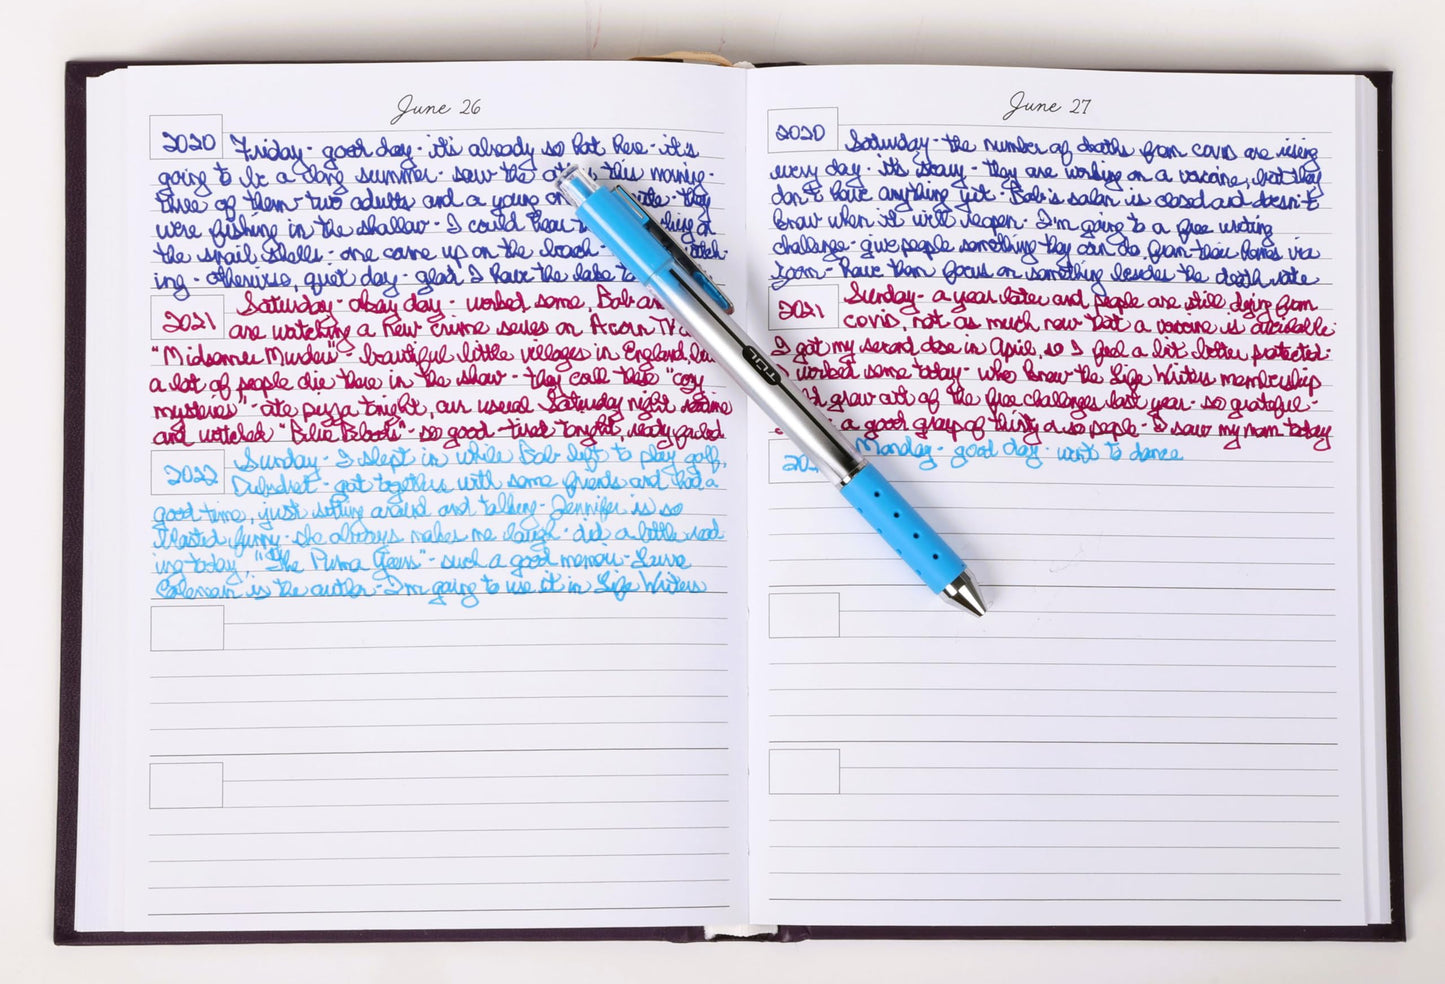 June 26
2020 Friday - good day - it's already so hot here - it's
going to be a long summer - saw the this morning -
three of them - two adults and a young one - they
were fishing in the shallow - I could hear
the snail shells - one came up on the beach -
ing - otherwise, quiet day - glad I have the lake to
2021 Saturday - okay day - worked some, Bob
are watching a new crime series on Acorn TV
"Midsomer Murders" - beautiful little villages in England, but
a lot of people die there in the show - they call these "cozy
mysteries" - ate pizza tonight, our usual Saturday night routine
and watched "Blue Bloods" - so good - tired tonight,
2022 Sunday - I slept in while Bob left to play golf,
got together with some friends and had a
good time, just sitting around and talking - Jennifer is so
funny - she always makes me laugh - did a little read
ing today, "The Puma Years" - such a good memoir - Laura
Coleman is the author - I'm going to use it in Life Writers
June 27
2020 Saturday - the number of deaths from covid are rising
every day - it's scary - they are working on a vaccine, but they
don't have anything yet - Bob's salon is closed and doesn't
know when it will reopen - I'm going to a free writing
challenge - give people something they can do from their homes via
zoom - have them focus on something besides the death rate
2021 Sunday - a year later and people are still dying from
covid, not as much now that a vaccine is available -
I got my second dose in April, so I feel a bit better protected -
I worked some today - who knew the Life Writers membership
grew out of the free challenges last year - so grateful -
a good group of thirty or so people - I saw my mom today
Monday - good day - went to dance
TUL